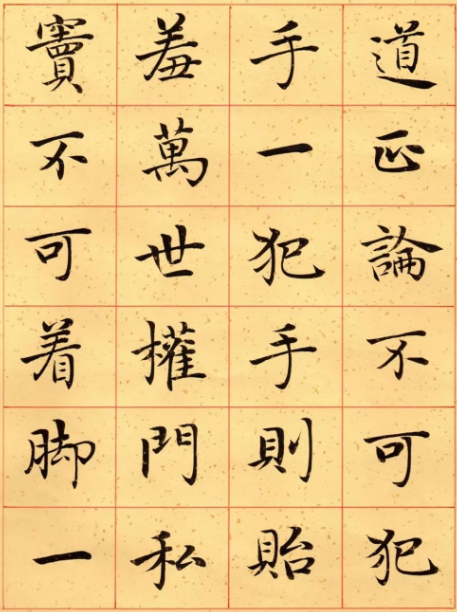 道正論不可犯
手一犯手則貽
羞萬世權門私
竇不可着脚一